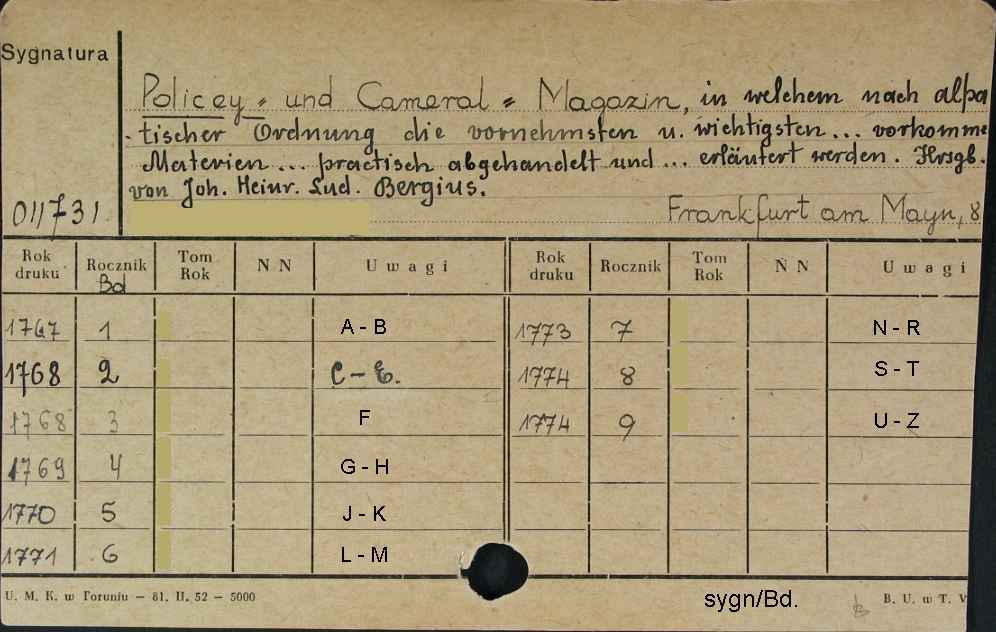 Sygnatura
Policey - und Cameral - Magazin, in welchem nach alpa
- tischer Ordnung die vornehmsten u. wichtigsten ... vorkomme
Materien ... practisch abgehandelt und ... erläutert werden. Hrsgb.
von Joh. Heinr. Lud. Bergius.
011731
Frankfurt am Mayn, 8
Rok druku Rocznik Tom Rok N N Uwagi Rok druku Rocznik Tom Rok N N Uwagi
Bd
1767 1 A - B 1773 7 N - R
1768 2 C - E. 1774 8 S - T
1768 3 F 1774 9 U - Z
1769 4 G - H
1770 5 J - K
1771 6 L - M
U. M. K. w Toruniu — 81. II. 52 — 5000 sygn/Bd. B. U. w T. V